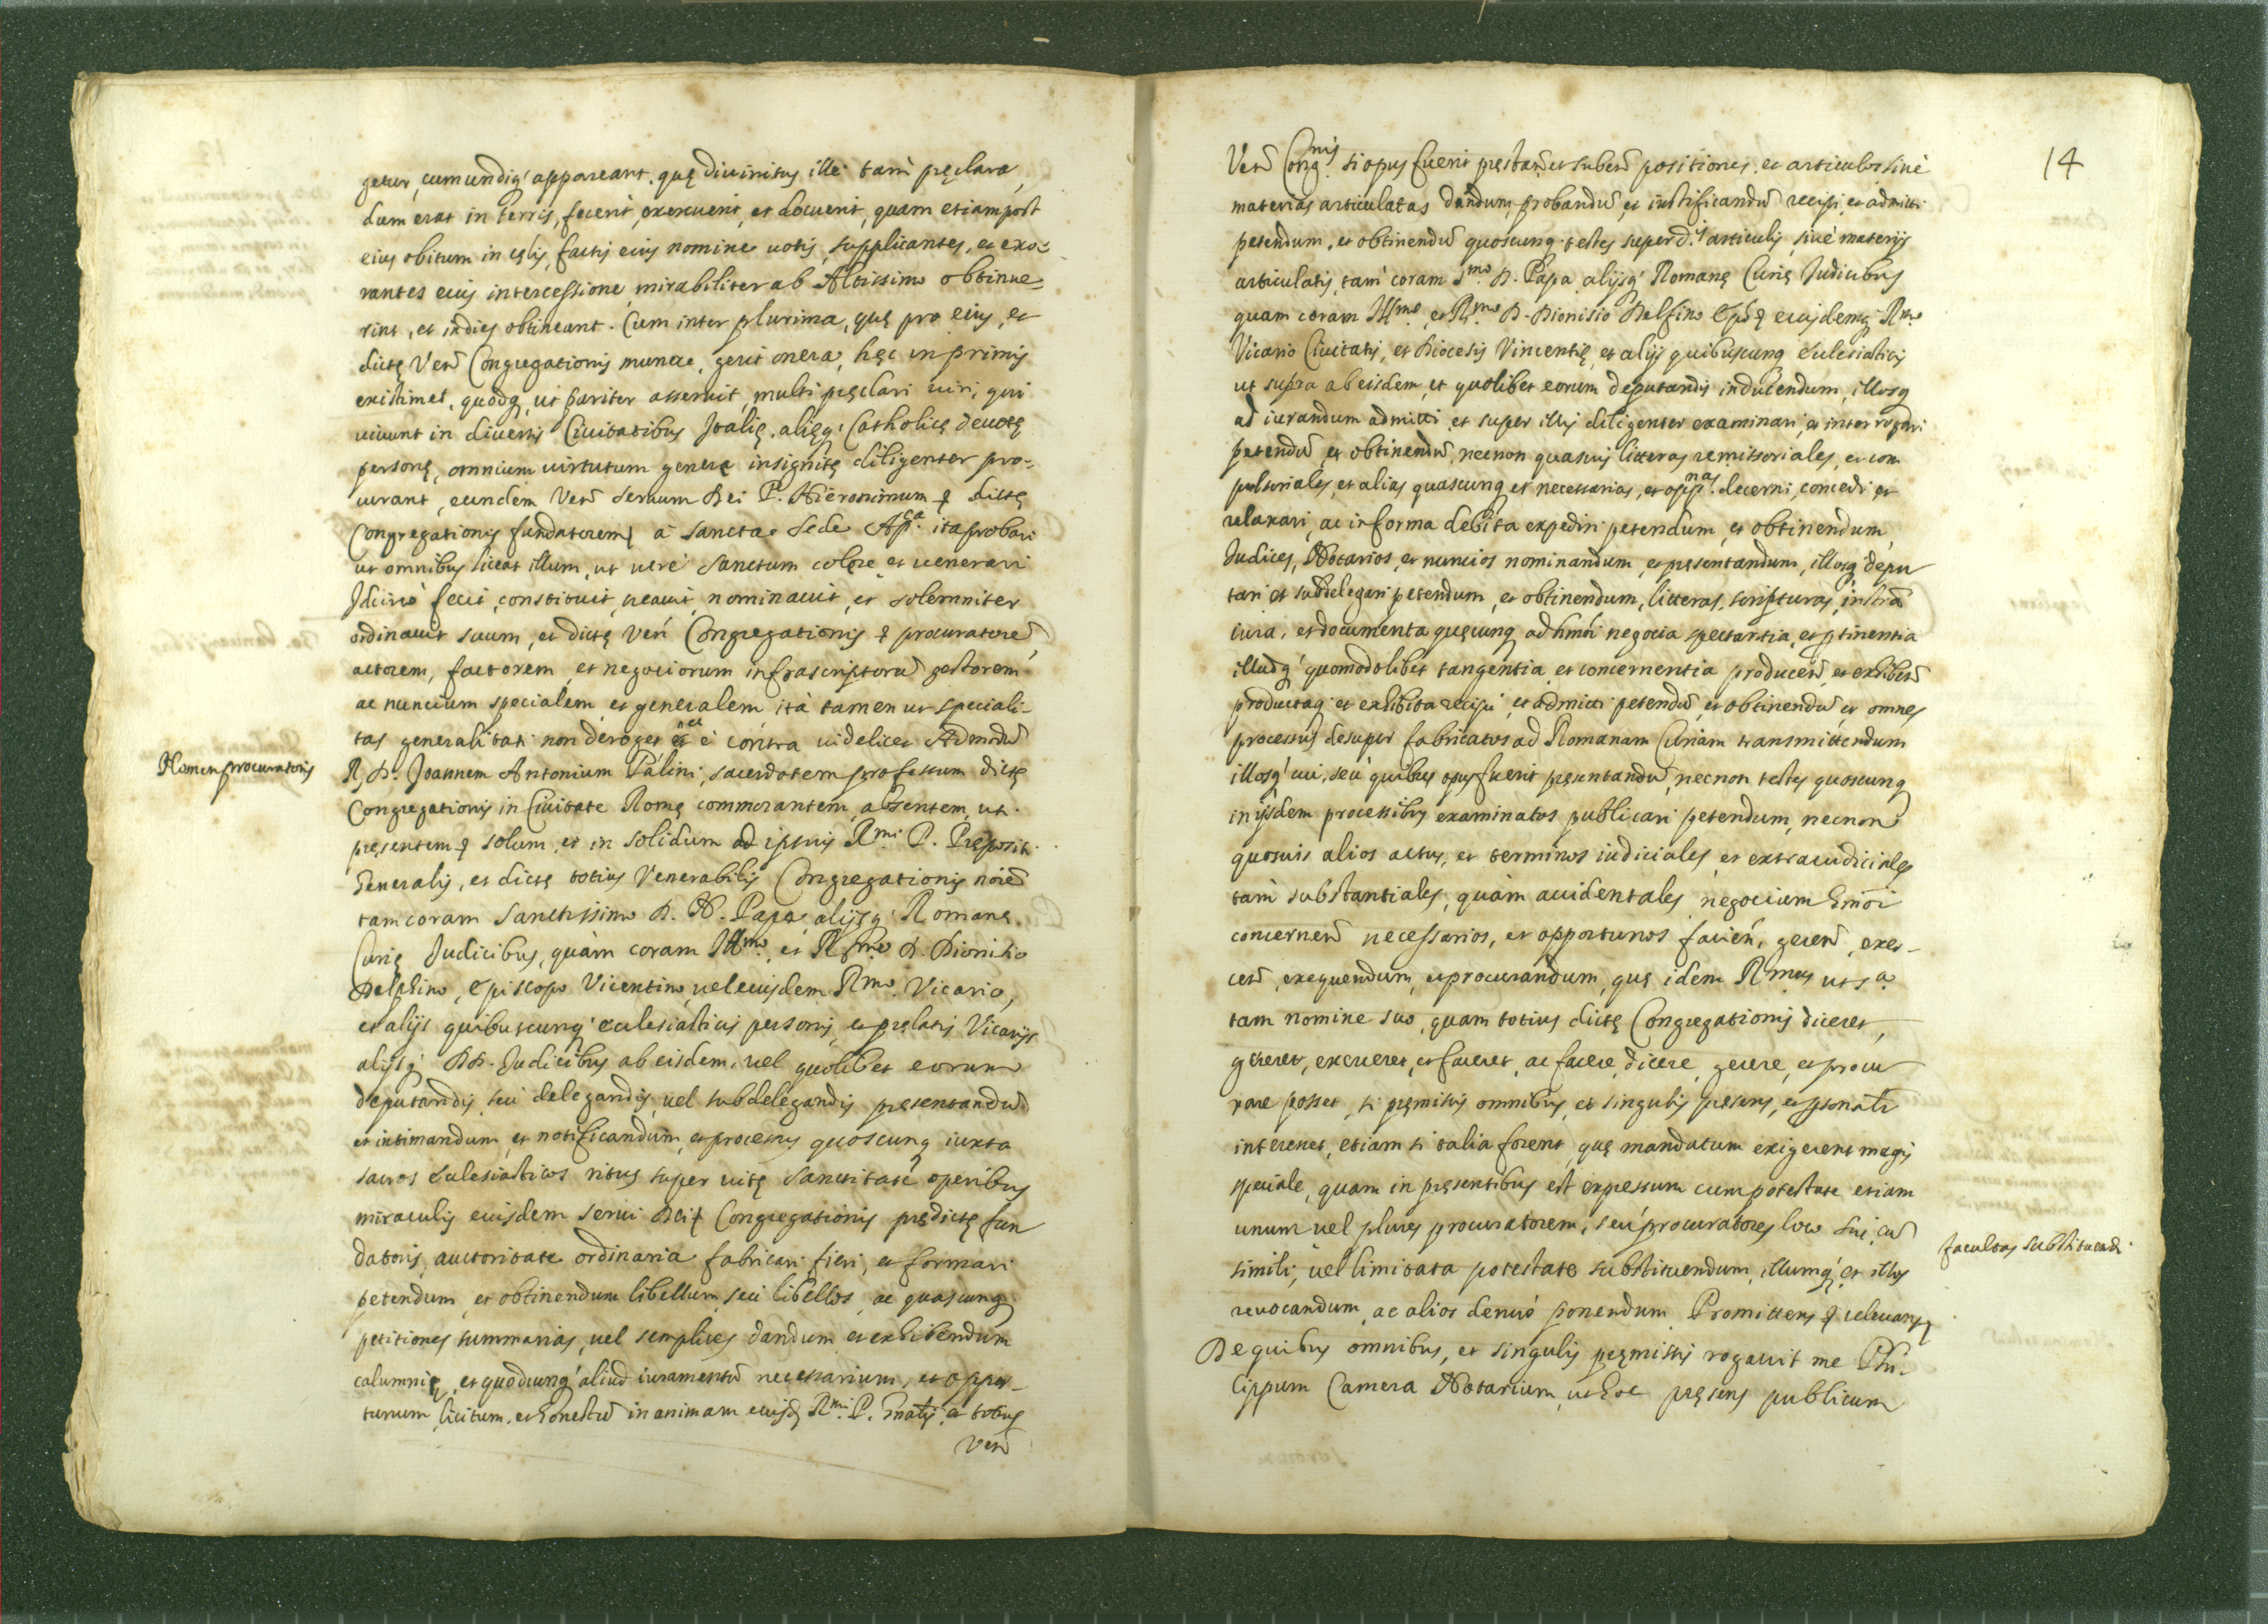 getur, cum undiq' appareant, quę divinitus illi tam pręclara,
dum erat in terris, fecerit, exercuerit, et docuerit, quam etiam post
eius obitum in cęlis, factis eius nomine votis, supplicantes, et exo-
rantes eius intercessione mirabiliter ab Altissimo obtinue-
rint, et indies obtineant. Cum inter plurima, quę pro eius, et
dictę Ven Congregationis munere, gerit onera, hęc inprimis
existimet, quodq ut pariter asseruit, multi pręclari viri, qui
vivunt in diversis Civitatibus Italię, alięq' Catholicę devotę
personę, omnium virtutum genere insignitę diligenter pro-
curant, eundem Ven servum Dei P. Hieronimum & dictę
Congregationis fundatorem à Sancta Sede Ap.ca ita probari
ut omnibus liceat illum, ut verè sanctum colere et venerari
Idcircò fecit, constituit, creavit, nominavit, et solemniter
ordinavit suum, et dictę Ven Congregationis & procuratorē
actorem, factorem, et negociorum infrascriptorū gestorem
ac nuncium specialem, et generalem ità tamen ut speciali-
tas generalitati non deroget nec è contra videlicet Admodū
Nomen procuratoris
R, D. Joannem Antonium Palini, sacerdotem professum dictę
Congregationis in Civitate Romę commorantem, absentem, ut
pręsentem & solum, et in solidum ad ipsius R.mi P. Pręposit.
Generalis, et dictę totius Venerabilis Congregationis noiē
tam coram Sanctissimo D. N. Papa alijsq' Romanę
Curię Judicibus, quàm coram Ill.mo, et R.mo D. Dionisio
Delphino, Episcopo Vicentino, vel eiusdem R.mo Vicario,
et alijs quibuscunq' ecclesiasticis personis, et pręlatis Vicarijs
alijsq' DD. Judicibus ab eisdem, vel quolibet eorum
deputandis, seu delegandis, vel subdelegandis pręsentandū
et intimandum, et notificandum, et processus quoscunq iuxta
sacros ecclesiasticos ritus super vitę sanctitate operibus
miraculis eiusdem servi Dei & Congregationis prędictę fun
datoris, auctoritate ordinaria fabricari, fieri, et formari
petendum, et obtinendum libellum, seu libellos, ac quascunq
petitiones summarias, vel semplices dandum et exhibendum
calumnię, et quodcunq' aliud iuramentū necessarium, et oppor-
tunum, licitum, et honestū in animam eiusd R.mi P. Gnalis, et totius
Ven
14
Ven Cong.nis si opus fuerit pręstan et suben positiones, et articulos sivè
materias articulatas dandum, probandū, et iustificandū recipi, et admitti
petendum, et obtinendū quoscunq testes super d.is articulis, sivè materijs
articulatis, tam coram S.mo D. Papa, alijsq' Romanę Curię Judicibus
quam coram Ill.mo, et R.mo D. Dionisio Delfino Epō & eiusdemq R.mo
Vicario Civitatis, et Diocesis Vincentię, et alijs quibuscunq ecclesiasticis
ut supra ab eisdem, et quolibet eorum deputandis inducendum, illosq
ad iurandum admitti et super illis diligenter examinari, et interrogari
petendū, et obtinendū, necnon quasvis litteras remissoriales, et com
pulsoriales, et alias quascunq et necessarias, et opp.nas decerni, concedi et
relaxari, ac in forma debita expediri petendum, et obtinendum,
Judices, Notarios, et nuncios nominandum, et pręsentandum, illosq depu
tari et subdelegari petendum, et obtinendum, litteras, scripturas, instrā
iura, et documenta quęcunq ad hmōi negocia spectantia, et ptinentia
illudq' quomodolibet tangentia, et concernentia producen, et exhiben
productaq et exhibita recipi, et admitti petendū, et obtinendū et omnes
processus desuper fabricatos ad Romanam Curiam transmittendum
illosq' cui, seù quibus opus fuerit pręsentandū, necnon testes quoscunq
in ijsdem processibus examinatos publicari petendum, necnon
quosvis alios actus, et terminos iudiciales, et extraiudiciales
tàm substantiales, quàm accidentales, negocium hmōi
concernen necessarios, et opportunos facien, geren, exer-
cen, exequendum, et procurandum, quę idem R.mus ut s.a
tam nomine suo, quam totius dictę Congregationis diceret,
gereret, exerceret, et faceret, ac facere, dicere, gerere, et procu
rare posset, si pręmissis omnibus, et singulis pręsens, et psonalr
interesset, etiam si talia forent, quę mandatum exigerent magis
speciale, quam in pręsentibus est expressum cum potestate etiam
unum vel plures procuratorem, seù procuratores loco sui, cū
facultas substituendi
simili, vel limitata potestate substituendum, illumq', et illos
revocandum, ac alios denuò ponendum. Promittens & relevans &
De quibus omnibus, et singulis pręmissis rogavit me Phi-
lippum Camera Notarium, ut hoc pręsens publicum